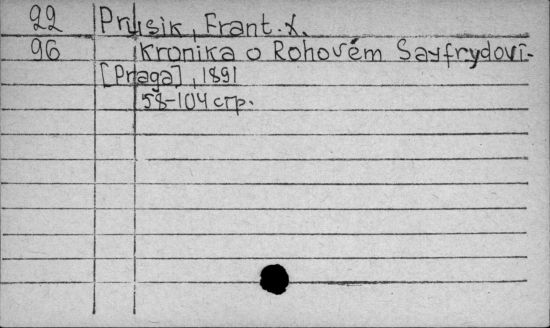 22 Prusik, Frant. X.
96 Kronika o Rohovém Sayfrydovi-
[Praga], 1891
58-104 стр.